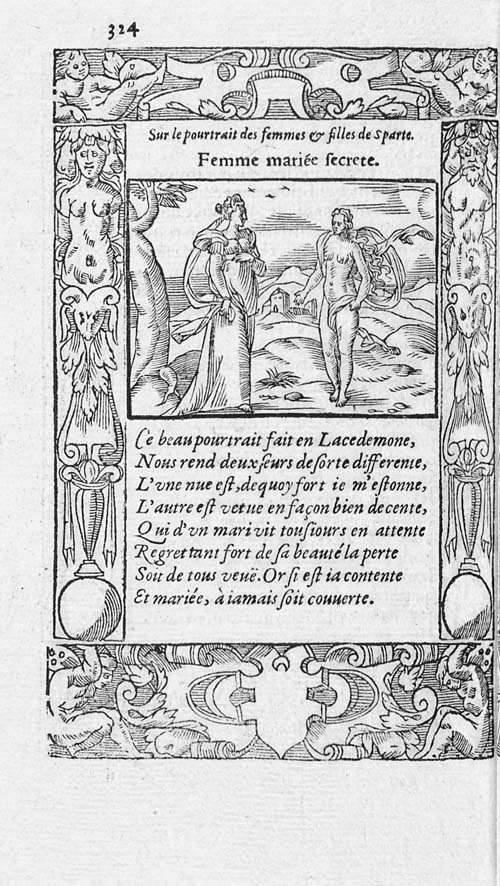 324
Sur le pourtrait des femmes & filles de Sparte.
Femme mariée secrete.
Ce beau pourtrait fait en Lacedemone,
Nous rend deux seurs de sorte differente,
L'vne nue est, dequoy fort ie m'estonne,
L'autre est vetue en façon bien decente,
Qui d'vn mari vit tousiours en attente
Regrettant fort de sa beauté la perte
Soit de tous veuë. Or si est ia contente
Et mariée, à iamais soit couuerte.